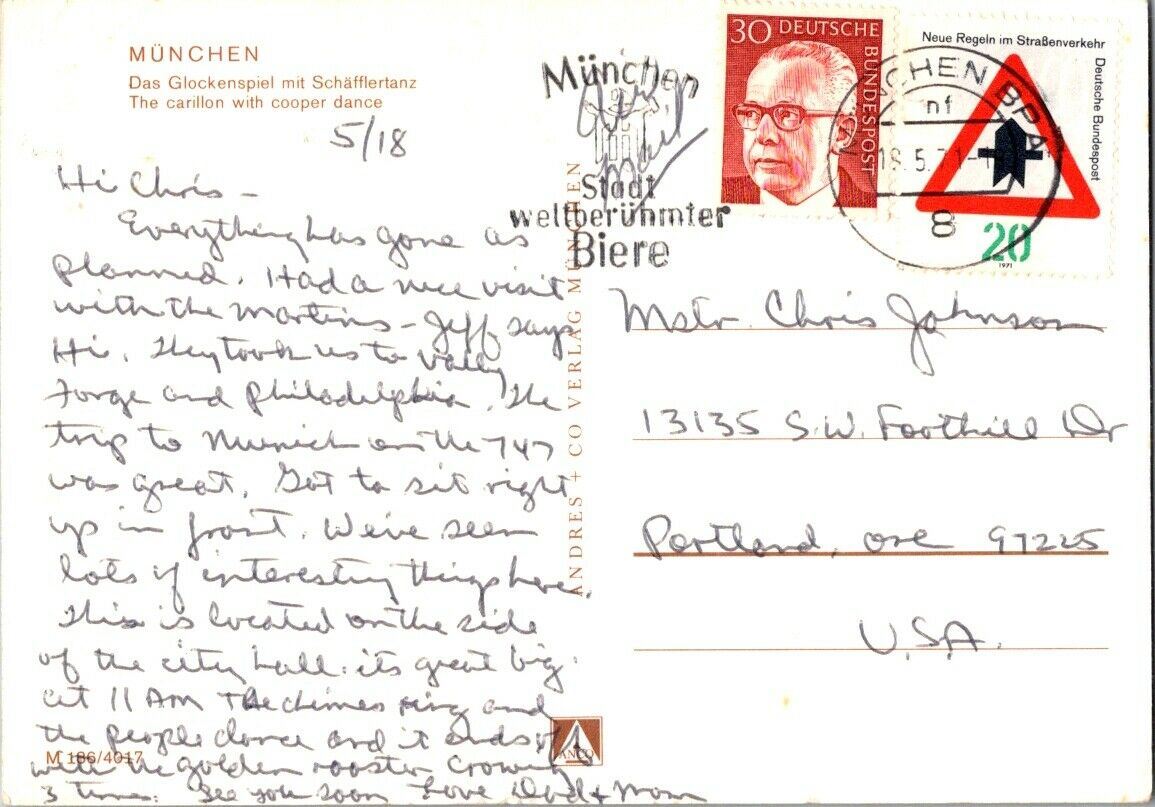 MÜNCHEN
Das Glockenspiel mit Schäfflertanz
The carillon with cooper dance
5/18
Hi Chris -
Everything has gone as
planned. Had a nice visit
with the Martins - Jeff says
Hi. They took us to Valley
Forge and Philadelphia. The
trip to Munich on the 747
was great. Got to sit right
up in front. We've seen
lots of interesting things here.
This is located on the side
of the city hall. its great big.
at 11 AM the chimes ring and
the people dance and it ends up
with the golden rooster crowing
3 times. See you soon Love Dad + Mom
M 186/4017
ANDRES + CO VERLAG MÜNCHEN
ANCO
München
Air
Mail
Stadt
weltberühmter
Biere
30 DEUTSCHE
BUNDESPOST
Neue Regeln im Straßenverkehr
Deutsche Bundespost
20
1971
MÜNCHEN BPA
nf
18.5.71
8
Mstr. Chris Johnson
13135 S.W. Foothill Dr
Portland, Ore 97225
U.S.A.